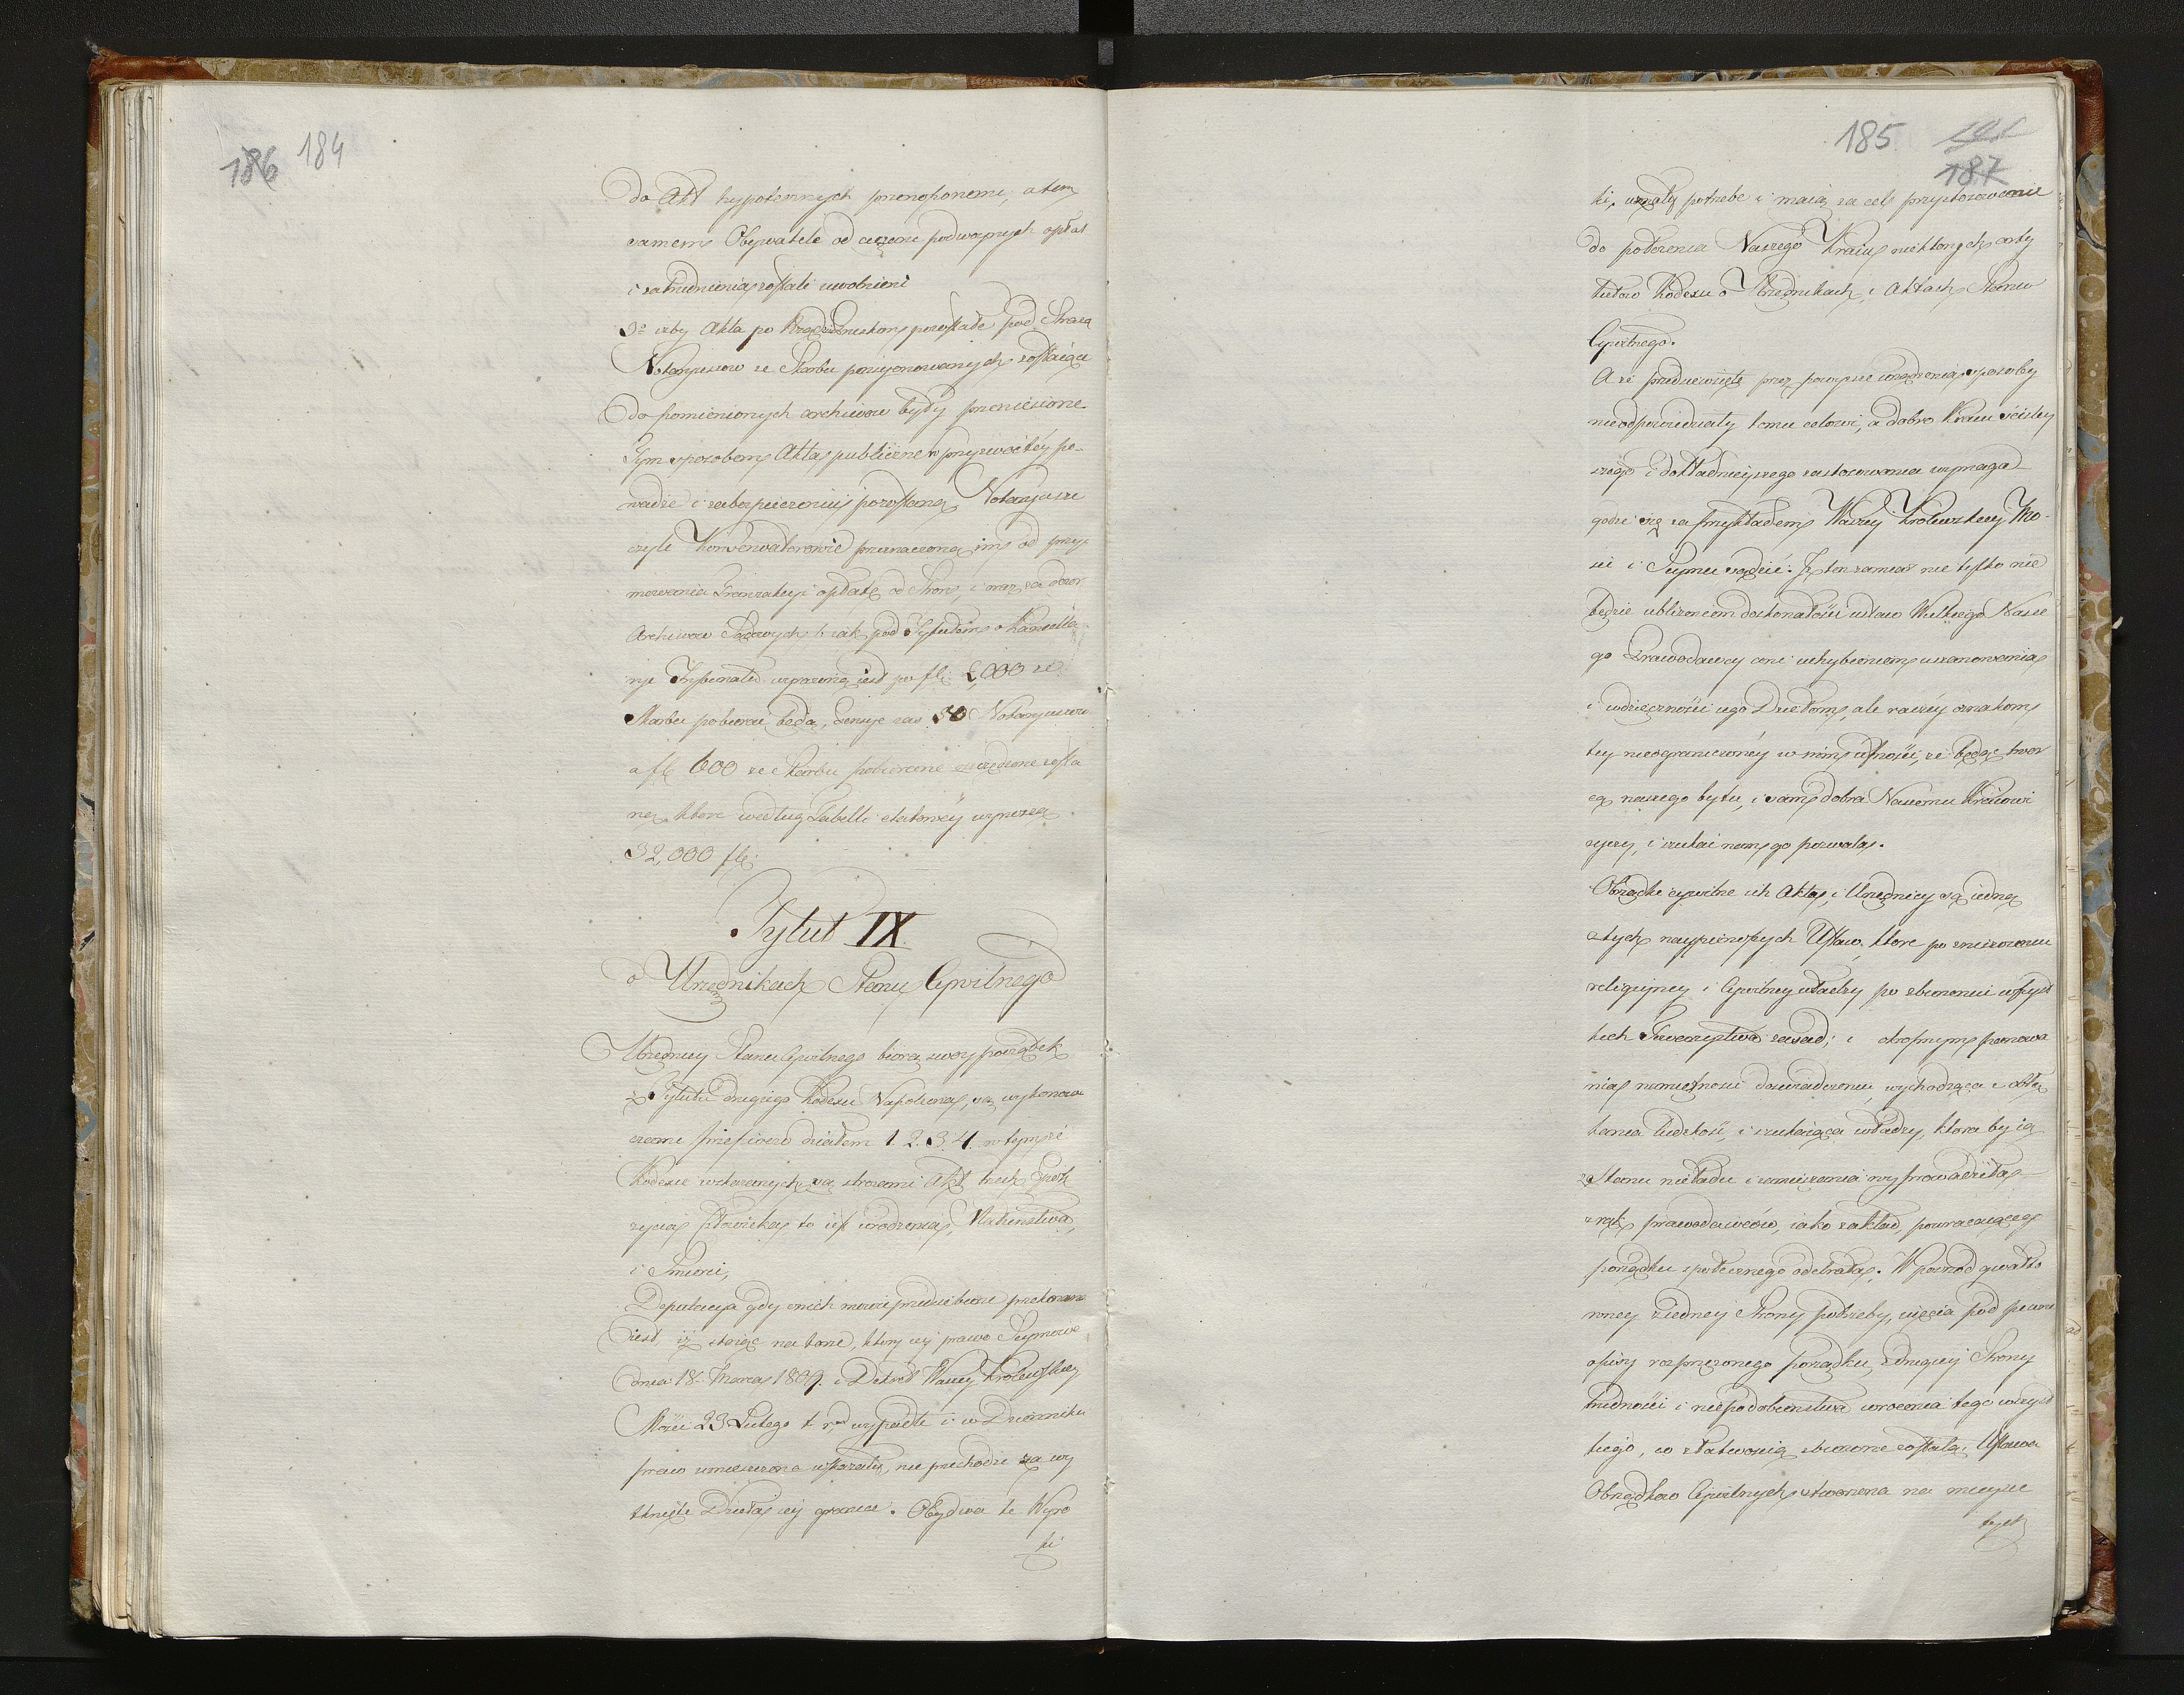 186 184
do Akt hypotecznych przenoszonemi, a tem
samem Obywatele od ciężaru podwoynych opłat
i zatrudnienia zostali uwolnieni
3º izby Akta po Rządzie Pruskim pozostałe pod Strażą
Notaryuszow ze Skarbu pensyonowanych zostaiące
do pomienionych archiwow były przeniesione
Tym sposobem Akta publiczne w przyzwoitéy po-
wadze i zabezpieczeniu pozostaną Notaryusze
czyli Konserwatorowie przeznaczoną im od przy-
mowania Tranzakcyi opłatę od Stron, i oraz za dozor
Archiwow Sądowych iak pod Tytułem o Kancella-
ryi Trybunałów wyrażono iest po fl: 2,000 ze
Skarbu pobierać będą, Pensye zas 30 Notaryuszow
a fl: 600 ze Skarbu pobierane oszczędzone zosta
ną, ktore według Tabelli etatowéy wynoszą
32,000 fl:
Tytuł IX.
o Urzędnikach Stanu Cywilnego
Urzędnicy Stanu Cywilnego biorą swoy początek
z Tytułu drugiego Kodexu Napoleona, są wykonaw
czemi przepisow działem 1. 2. 3. 4. w tymże
Kodexie wskazanych, są strożami Akt trzech Epok
życia Człowieka, to iest urodzenia, Małżeństwa,
i Śmierci,
Deputacya gdy o nich mowić przedsiębierze przekonana
iest, iż stoiąc na torze, ktory iey prawo Seymowe
dnia 18. Marca 1809. i Dekret Waszey Krolewskiey
Mości 23 Lutego t. r. wypadłe i w Dzienniku
praw umieszczone wskazały, nie przechodzi za wy
tknięte Dzieła iéy granice. Obydwa te Wyro
ki
185 187
ki, uznały potrzebę i maią za cel przystosowanie
do położenia Naszego Kraiu niektorych arty
kułow Kodexu o Urzędnikach, i Aktach Stanu
Cywilnego.
A że przedsięwzięte przez powyższe urządzenia sposoby
nieodpowiedziały temu celowi, a dobro Kraiu ściśley
szego i dokładnieyszego zastosowania wymaga
godzi się za przykładem Waszey Krolewskiey Mo-
ści i Seymu sądzić. Iż ten zamiar nie tylko nie
będzie ubliżeniem doskonałości ustaw Wielkiego Nasze
go Prawodawcy ani uchybieniem uszanowania
i wdzięczności iego Dziełom, ale raczéy oznakom
tey nieograniczonéy w nim ufności, że będąc twor
cą naszego bytu, i sam dobra Naszemu Kraiowi
życzy, i szukać nam go pozwala.
Obrządki cywilne ich Akta, i Urzędnicy są iedną
z tych naypierwszych Ustaw, ktore po zniszczeniu
religiyney i Cywilney władzy po zburzeniu wszyst
kich Towarzystwa zasad; i okropnym panowa
nia namiętności doświadczeniu, wychodząca z obłą
kania ludzkość, i szukaiąca władzy, ktora by ią
z Stanu nieładu i zamieszania wyprowadziła
z rąk prawodawców, iako zakład, powracaiącego
porządku społecznego odebrała. W pośrod gwałto
wney z iedney Strony potrzeby, uięcia pod pewne
opisy rozprzężonego porządku, z drugiey Strony
trudności i niepodobieństwa wrocenia tego wszyst
kiego, co z łatwością zburzone zostało; Ustawa
Obrządkow Cywilnych stworzona na mieysce
tych